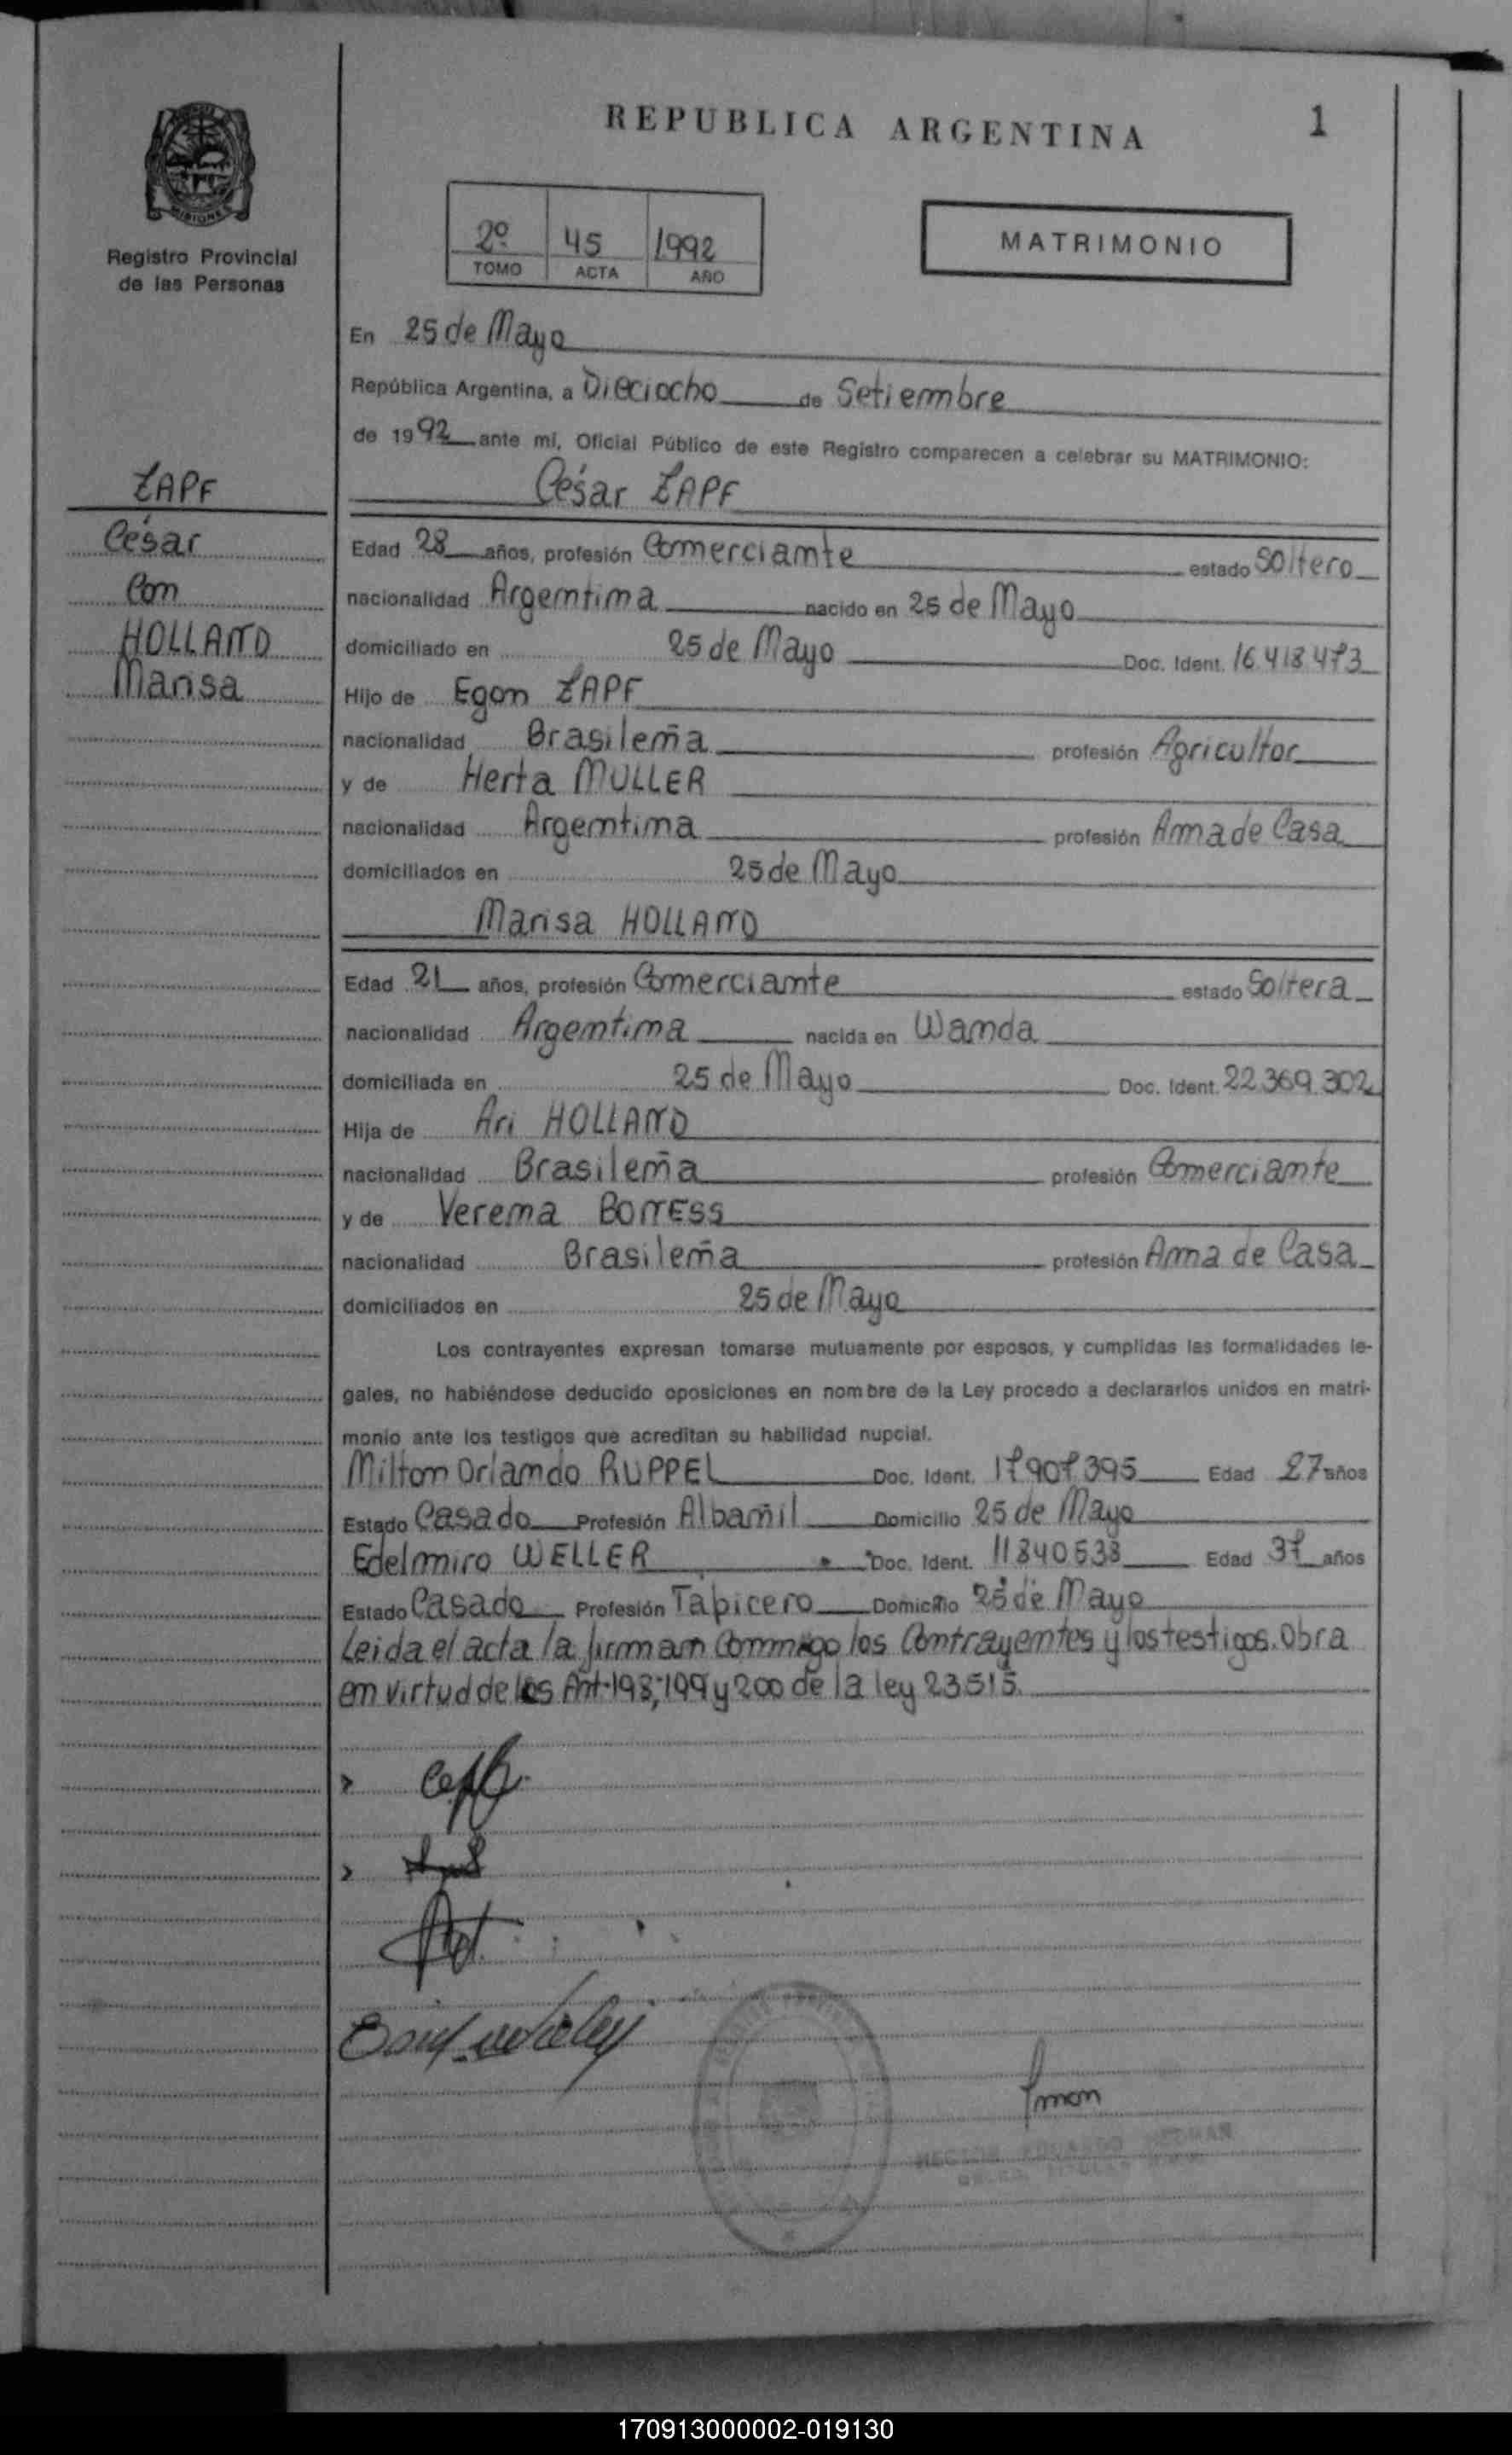 REPUBLICA ARGENTINA 1
MISIONES
Registro Provincial
de las Personas
2º 45 1992
TOMO ACTA AÑO
MATRIMONIO
En 25 de Mayo
República Argentina, a Dieciocho de Setiembre
de 1992 ante mí, Oficial Público de este Registro comparecen a celebrar su MATRIMONIO:
ZAPF
César
Con
HOLLAND
Marisa
César ZAPF
Edad 28 años, profesión Comerciante estado Soltero
nacionalidad Argentina nacido en 25 de Mayo
domiciliado en 25 de Mayo Doc. Ident. 16.418.473
Hijo de Egon ZAPF
nacionalidad Brasileña profesión Agricultor
y de Herta MULLER
nacionalidad Argentina profesión Ama de Casa
domiciliados en 25 de Mayo
Marisa HOLLAND
Edad 21 años, profesión Comerciante estado Soltera
nacionalidad Argentina nacida en Wanda
domiciliada en 25 de Mayo Doc. Ident. 22.369.302
Hija de Ari HOLLAND
nacionalidad Brasileña profesión Comerciante
y de Verena BONESS
nacionalidad Brasileña profesión Ama de Casa
domiciliados en 25 de Mayo
Los contrayentes expresan tomarse mutuamente por esposos, y cumplidas las formalidades le-
gales, no habiéndose deducido oposiciones en nombre de la Ley procedo a declararlos unidos en matri-
monio ante los testigos que acreditan su habilidad nupcial.
Milton Orlando RUPPEL Doc. Ident. 17907395 Edad 27 años
Estado Casado Profesión Albañil Domicilio 25 de Mayo
Edelmiro WELLER Doc. Ident. 11840538 Edad 37 años
Estado Casado Profesión Tapicero Domicilio 25 de Mayo
Leida el acta la firman Conmigo los Contrayentes y los testigos. Obra
en virtud de los Art. 198, 199 y 200 de la ley 23515.
HECTOR EDUARDO
170913000002-019130